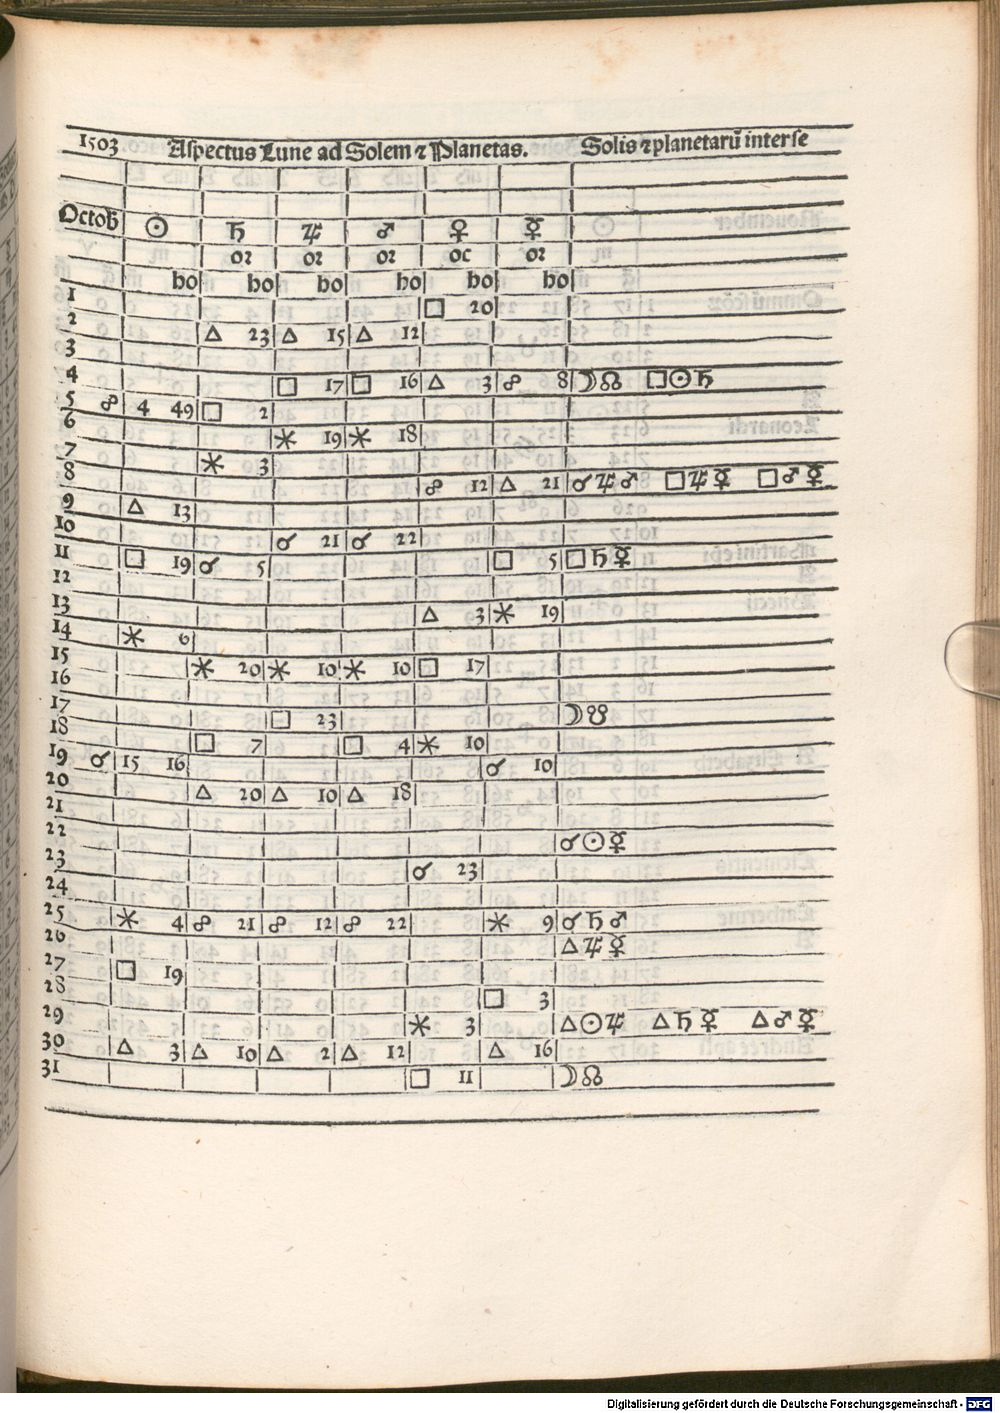 1503 Aspectus Lune ad Solem ⁊ Planetas. Solis ⁊ planetarũ inter se
Octob ☉ ♄ ♃ ♂ ♀ ☿
oꝛ oꝛ oꝛ oc oꝛ
ho ho ho ho ho ho
1 □ 20
2 △ 23 △ 15 △ 12
3
4 □ 17 □ 16 △ 3 ☍ 8 ☽☊ □☉♄
5 ☍ 4 49 □ 2
6 ⚹ 19 ⚹ 18
7 ⚹ 3
8 ☍ 12 △ 21 ☌♃♂ □♃☿ □♂☿
9 △ 13
10 ☌ 21 ☌ 22
11 □ 19 ☌ 5 □ 5 □♄☿
12
13 △ 3 ⚹ 19
14 ⚹ 6
15 ⚹ 20 ⚹ 10 ⚹ 10 □ 17
16
17 □ 23 ☽☋
18 □ 7 □ 4 ⚹ 10
19 ☌ 15 16 ☌ 10
20 △ 20 △ 10 △ 18
21
22 ☌☉☿
23 ☌ 23
24
25 ⚹ 4 ☍ 21 ☍ 12 ☍ 22 ⚹ 9 ☌♄♂
26 △♃☿
27 □ 19
28 □ 3
29 ⚹ 3 △☉♃ △♄☿ △♂☿
30 △ 3 △ 10 △ 2 △ 12 △ 16
31 □ 11 ☽☊
Digitalisierung gefördert durch die Deutsche Forschungsgemeinschaft - DFG